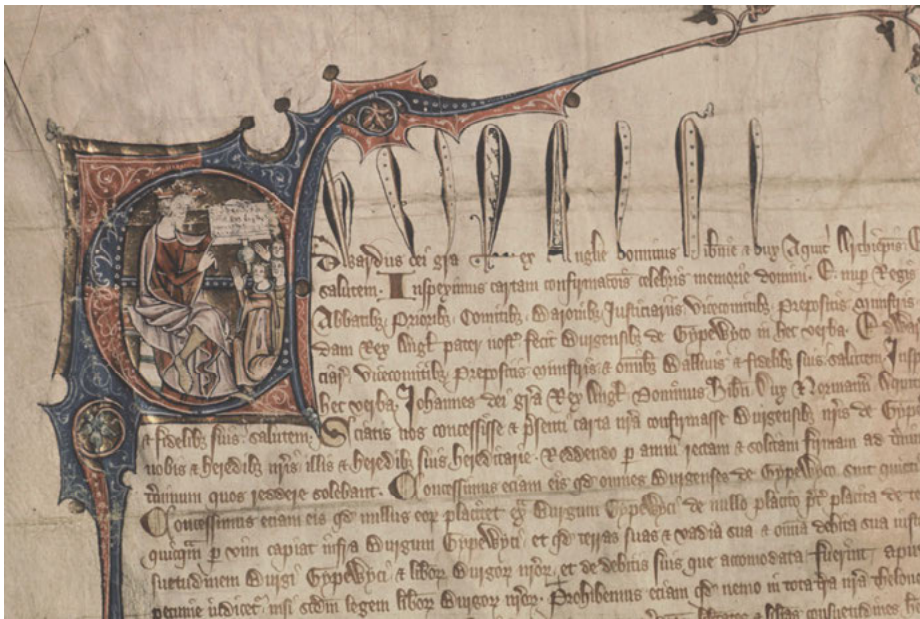 Edwardus dei gra Rex Anglie dominus Hibnie & dux Aquit Archiepis
salutem. Inspeximus cartam confirmacois celebris memorie domini. E. nup Regis
Abbatibz. Prioribz. Comitibz. Baronibz. Justiciariis vicecomitibz. Prepositis ministris
dam Rex Angl pater nost fecit Burgensibz de Gypewyco in hec verba. Edwa
ciar. vicecomitibz. Prepositis ministris & omibz Ballivis & fidelibz suis salutem. Insp
hec verba. Johannes dei gra Rex Angl. Dominus Hibn. Dux Normann Aquit
& fidelibz suis salutem. Sciatis nos concessisse & psenti carta nra confirmasse Burgensibz nris de Gyp
nobis & heredibz nris illis & heredibz suis hereditarie. Reddendo p annu rectam & solitam firmam ad
tminum quos reddere solebant. Concessimus eciam eis qd omnes Burgenses de Gypewyco sint quieti
Concessimus eciam eis qd nullus eor placitet ex Burgum Gypewyci de nullo placito pt placita de
quicqm p vim capiat infra Burgum Gypewyci. et qd terras suas & vadia sua & omia debita sua
suetudinem Burgi Gypewyci & libor Burgor nror. et de debitis suis que acomodata fuerint apud
pecunie indicet. nisi scdm legem libor Burgor nror. Prohibemus eciam qd nemo in tota tra nra thelone
libertates & libas consuetudines